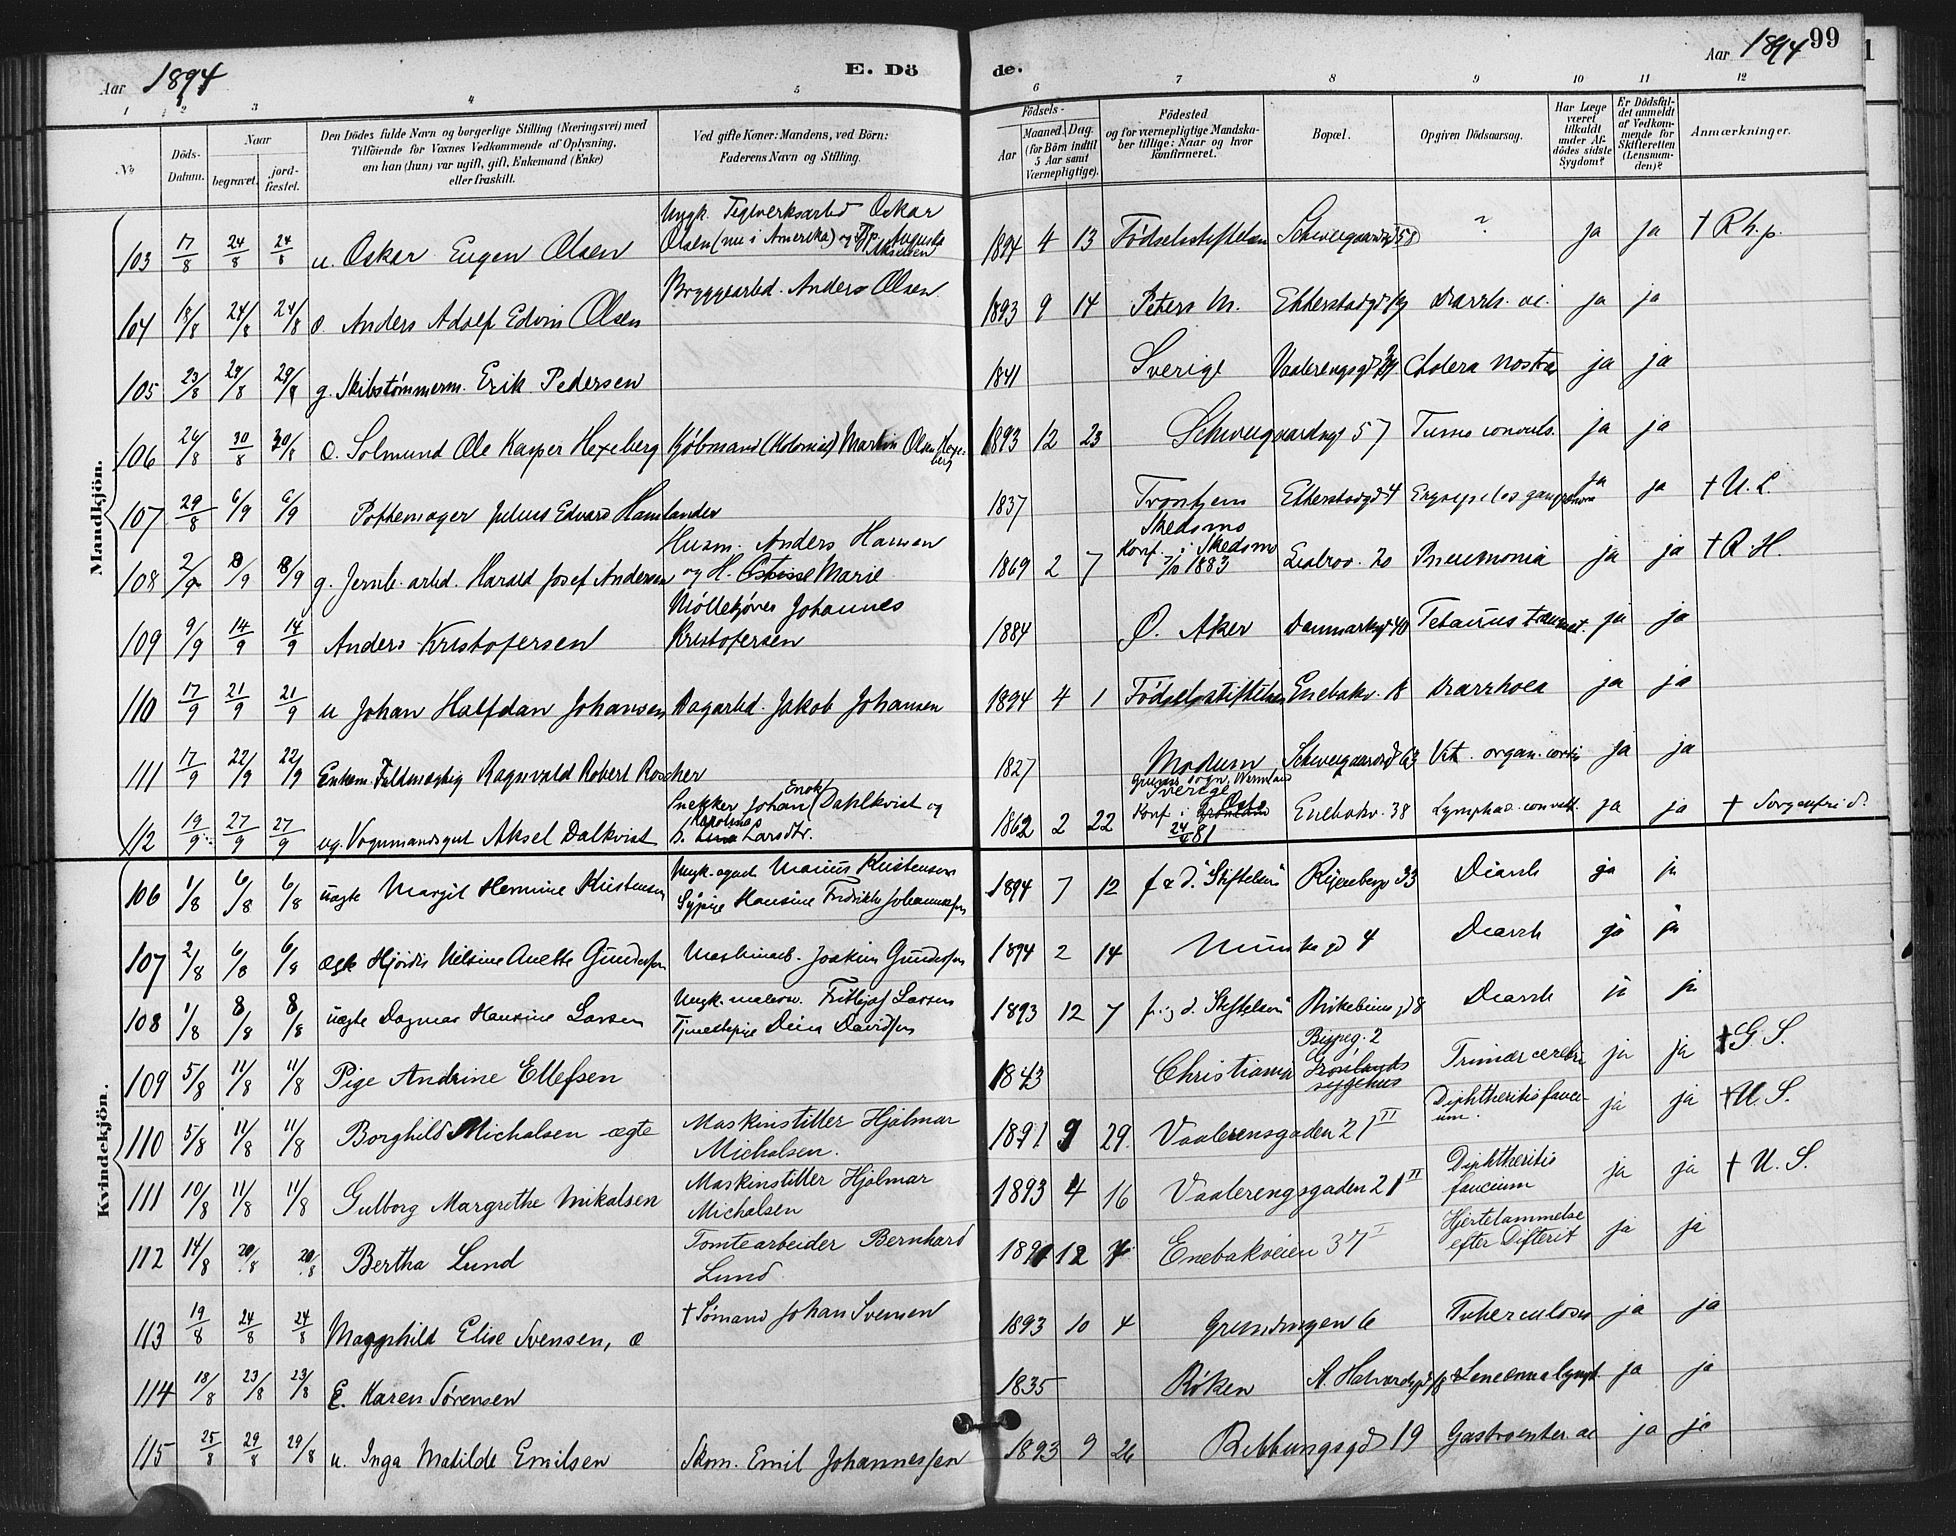 Aar 1894 E. Dö de. Aar 1894 99
1 2 3 4 5 6 7 8 9 10 11 12
No Döds-Datum. Naar begravet. jord-fæstet. Den Dödes fulde Navn og borgerlige Stilling (Næringsvei) med Tilföiende for Voxnes Vedkommende af Oplysning, om han (hun) var ugift, gift, Enkemand (Enke) eller fraskilt. Ved gifte Koner: Mandens, ved Börn: Faderens Navn og Stilling. Födsels- Aar Maaned. Dag. (for Börn indtil 5 Aar samt Værnepligtige). Födested og for værnepligtige Mandska-ber tillige: Naar og hvor konfirmeret. Bopæl. Opgiven Dödsaarsag. Har Læge været tilkaldt under Af-dödes sidste Sygdom? Er Dödsfal-det anmeldt af Vedkom-mende for Skifteretten (Lensman-den)? Anmærkninger.
Mandkjön.
103 17/8 24/8 24/8 u. Oskar Eugen Olsen Ungk. Teglverksarbd Oskar Olsen (nu i Amerika) og Augusta 1894 4 13 Födselsstiftelsen Schweigaardsgd 58 ? ja ja † R. h. p.
104 18/8 24/8 24/8 æ. Anders Adolf Edvin Olsen Bryggearbd. Anders Olsen 1893 9 14 Peters M. Diarrh. ac. ja ja
105 23/8 29/8 29/8 g. Skibstømmerm. Erik Pedersen 1841 Sverige Vaalerengsgd Cholera nostras ja ja
106 24/8 30/8 30/8 æ. Solmund Ole Kasper Hexeberg Kjöbmand (Kolonial) Martin Olsen Hexeberg 1893 12 23 Schweigaardsgd 57 Tussis convuls. ja ja
107 29/8 6/9 6/9 Pottemager Julius Edvard Hamlander 1837 Trontjem Etterstadgd 4 Erysipelas gangrænosa ja ja † U. L.
108 2/9 8/9 8/9 g. Jernb. arbd. Harald Josef Andersen Husm. Anders Hansen og H. Marie 1869 2 7 Skedsmo Konf. i Skedsmo 7/10 1883 Ljabrov. 20 Pneumonia ja ja † R. H.
109 9/9 14/9 14/9 Anders Kristofersen Johannes Kristofersen 1884 Ø. Aker Danmarksgd 40 Tetanus traumat. ja ja
110 17/9 21/9 21/9 u Johan Halfdan Johansen Dagarbd. Jakob Johansen 1894 4 1 Födselsstiftelsen Enebakv. Diarrhoea ja ja
111 17/9 22/9 22/9 Enkem. Fuldmægtig Ragnvald Robert Roscher 1827 Modum Schweigaardsgd 63 Vit. organ. cordis ja ja
112 19/9 27/9 27/9 ug. Vognmandsgut Aksel Dalkvist Snekker Johan Enok Dahlkvist og H. Karoline Larsdtr. 1862 2 22 Sogn, Wermland Sverige Konf. i 24/ 81 Enebakv. 38 ja ja † Sorgenfri d.
Kvindekjön.
106 1/8 6/8 6/8 uægte Margit Hermine Kristensen Ungk. agent Marius Kristensen Sypige Hansine Fredrikke Johannessen 1894 7 12 f. i d. "Stiftelsen" Ryenbergv 33 Diarrh ja ja
107 2/8 6/8 6/8 ægte Hjördis Nilsine Anette Gundersen Maskinarb. Joakim Gundersen 1894 2 14 Munkegd 4 Diarrh ja ja
108 1/8 8/8 8/8 uægte Dagmar Hansine Larsen Ungk. malersv. Frithjof Larsen Tjenestepige Davidsen 1893 12 7 f. i d. "Stiftelsen" Birkebeinergd 8 Diarrh ja ja
109 5/8 11/8 11/8 Pige Andrine Ellefsen 1843 Christiania Bispeg. 2 Grønlands sygehus cerebri ja ja † G. S.
110 5/8 11/8 11/8 Borghild Michalsen ægte Maskinstiller Hjalmar Michalsen. 1891 9 29 Vaalerensgaden 21 II Diphtheritis faucium. ja ja † U. S.
111 10/8 11/8 11/8 Gulborg Margrethe Mikalsen Maskinstiller Hjalmar Michalsen 1893 4 16 Vaalerengsgaden 21 II Diphtheritis faucium ja ja † U. S.
112 14/8 20/8 20/8 Bertha Lund Tomtearbeider Bernhard Lund. 1891 12 Enebakveien 37 I Hjertelammelse efter Difterit ja ja
113 19/8 24/8 24/8 Magnhild Elise Svensen, æ † Sömand Johan Svensen 1893 10 4 Grundvingen 6 Tuberculosis ja ja
114 18/8 23/8 23/8 E. Karen Sörensen 1835 Röken St. Halvardsgd 18 ja ja
115 25/8 29/8 29/8 u. Inga Matilde Emilsen Skom. Emil Johannessen 1893 9 26 Ribbungsgd 19 Gastroenter. ac ja ja